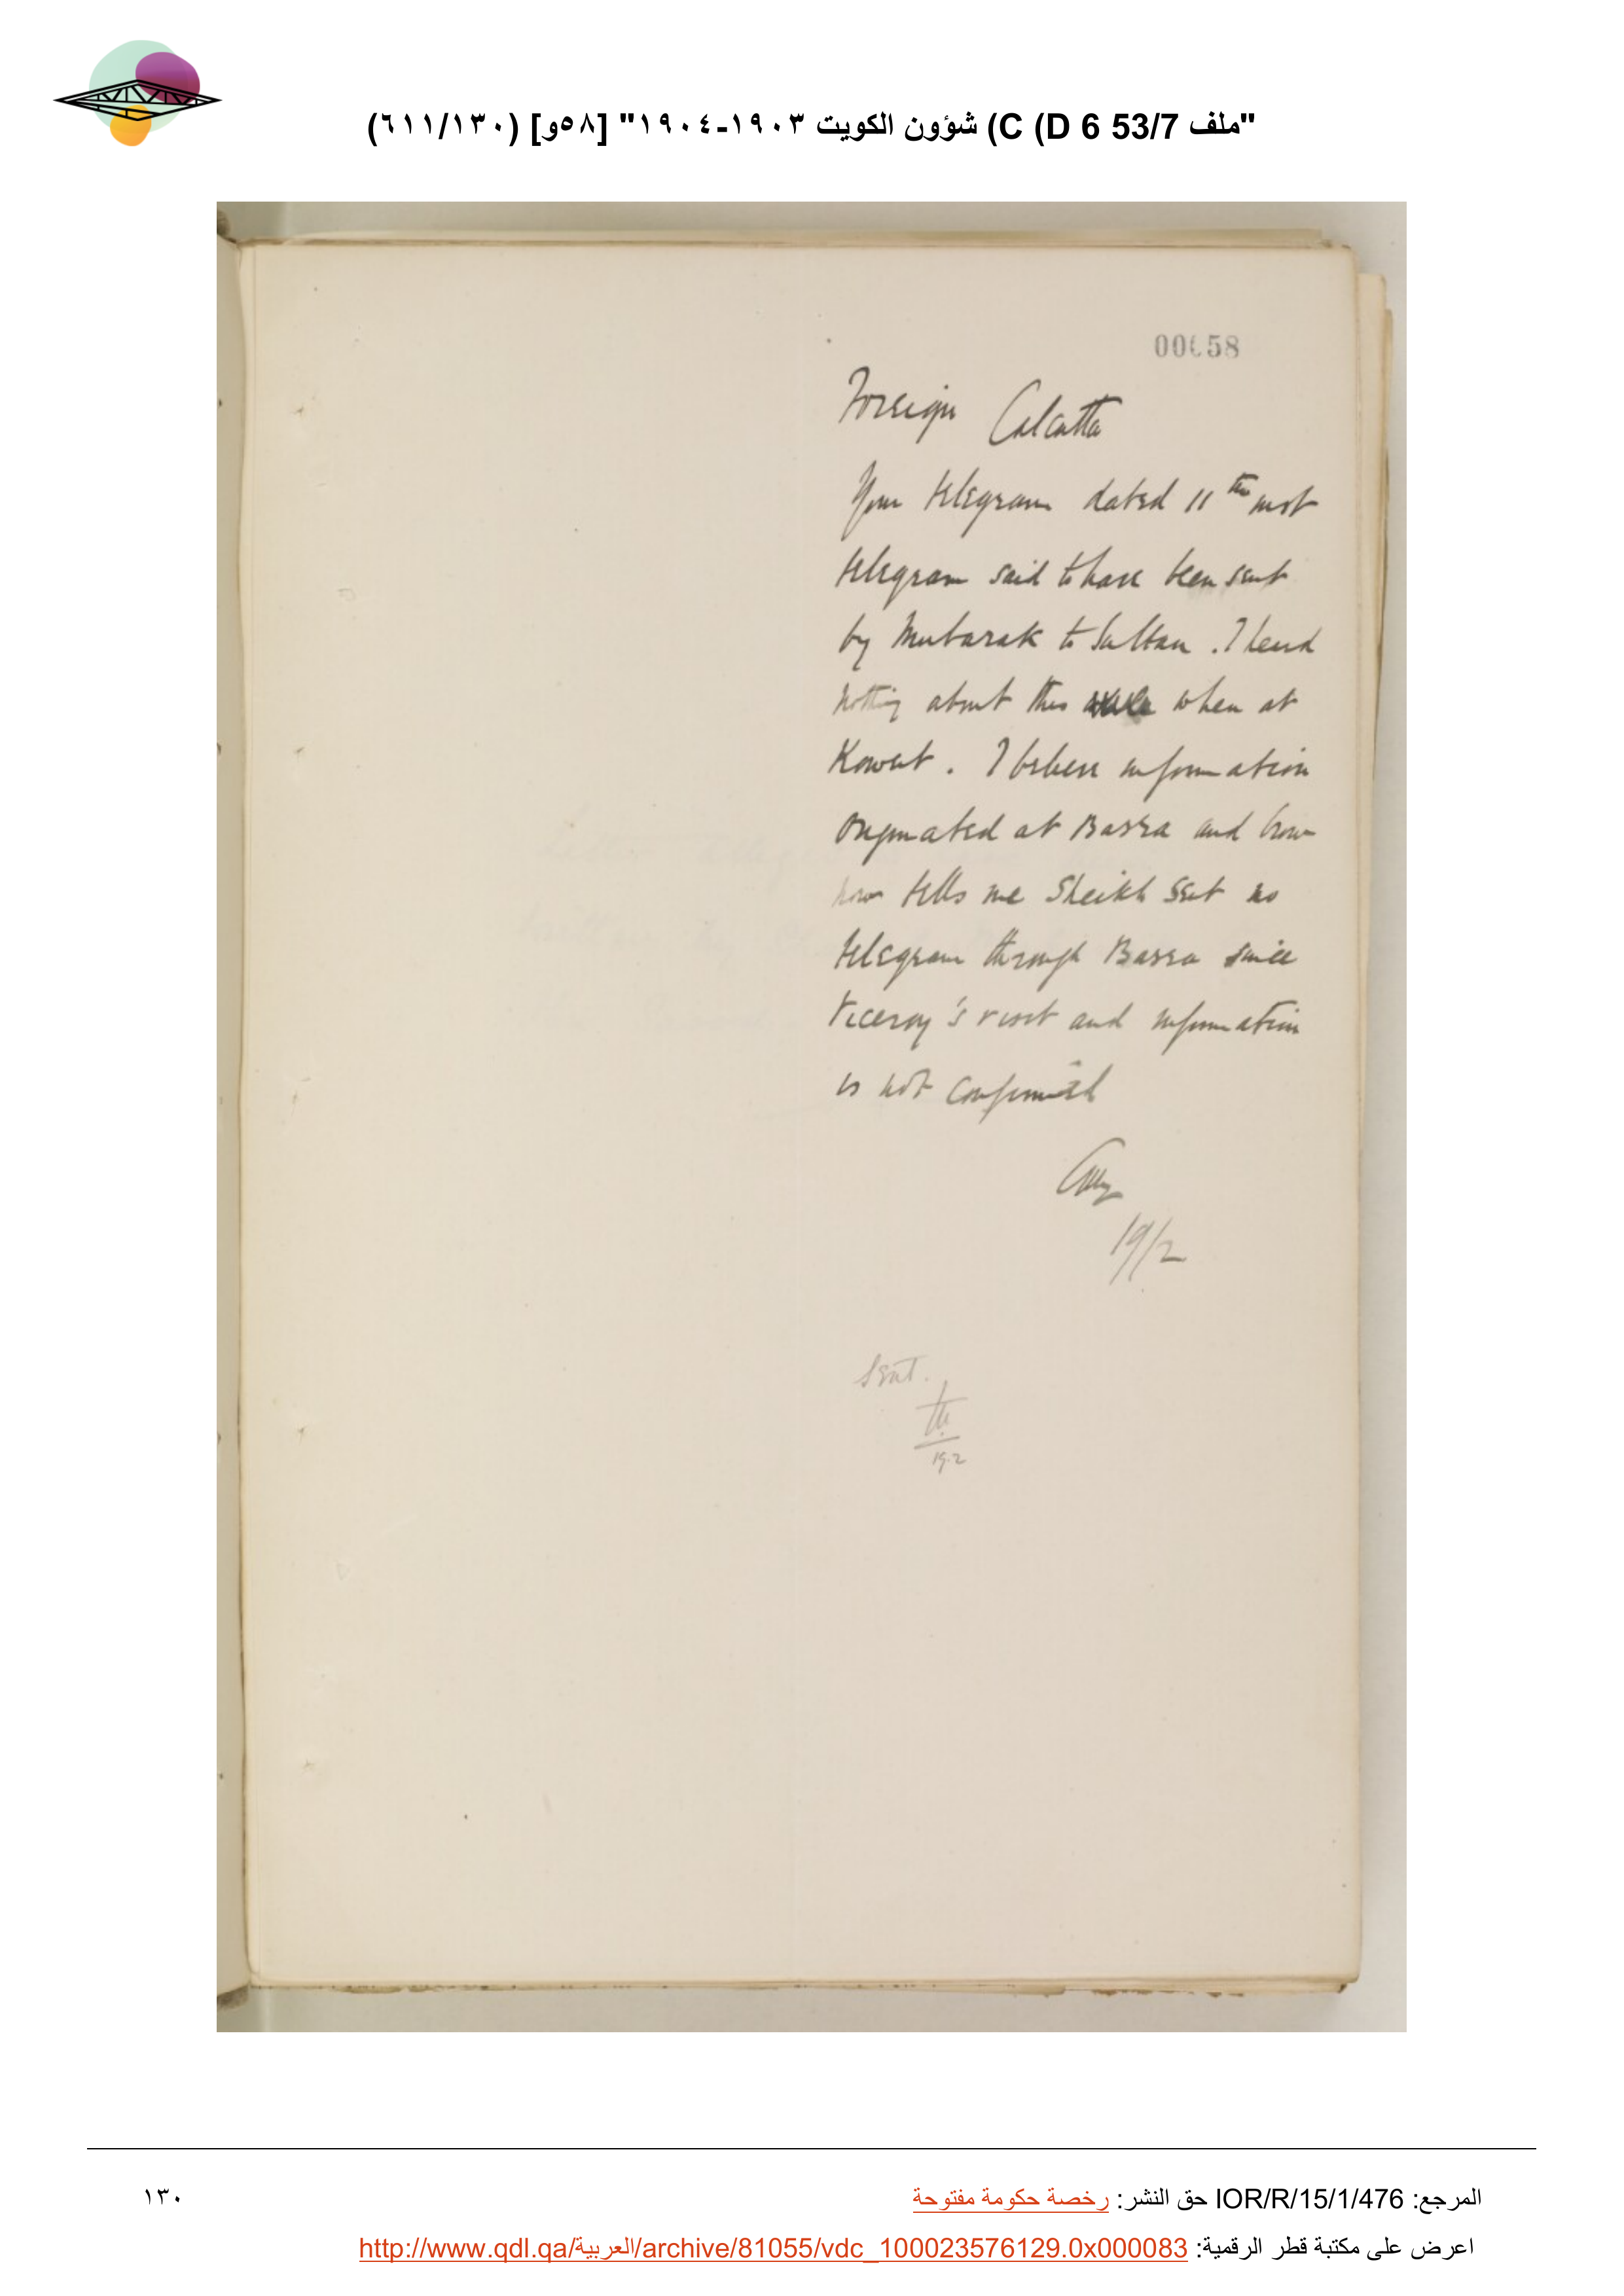 "ملف 53/7 D 6) C) شؤون الكويت ١٩٠٣-١٩٠٤" [٥٨و] (٦١١/١٣٠)
00058
Foreign Calcutta
Your telegram dated 11th inst
telegram said to have been sent
by Mubarak to Sultan. I heard
nothing about this when at
Koweit. I believe information
originated at Basra and Crow
now tells me Sheikh sent no
telegram through Basra since
Viceroy's visit and information
is not confirmed
19/2
Sent.
19.2
المرجع: IOR/R/15/1/476 حق النشر: رخصة حكومة مفتوحة
١٣٠
اعرض على مكتبة قطر الرقمية: http://www.qdl.qa/العربية/archive/81055/vdc_100023576129.0x000083